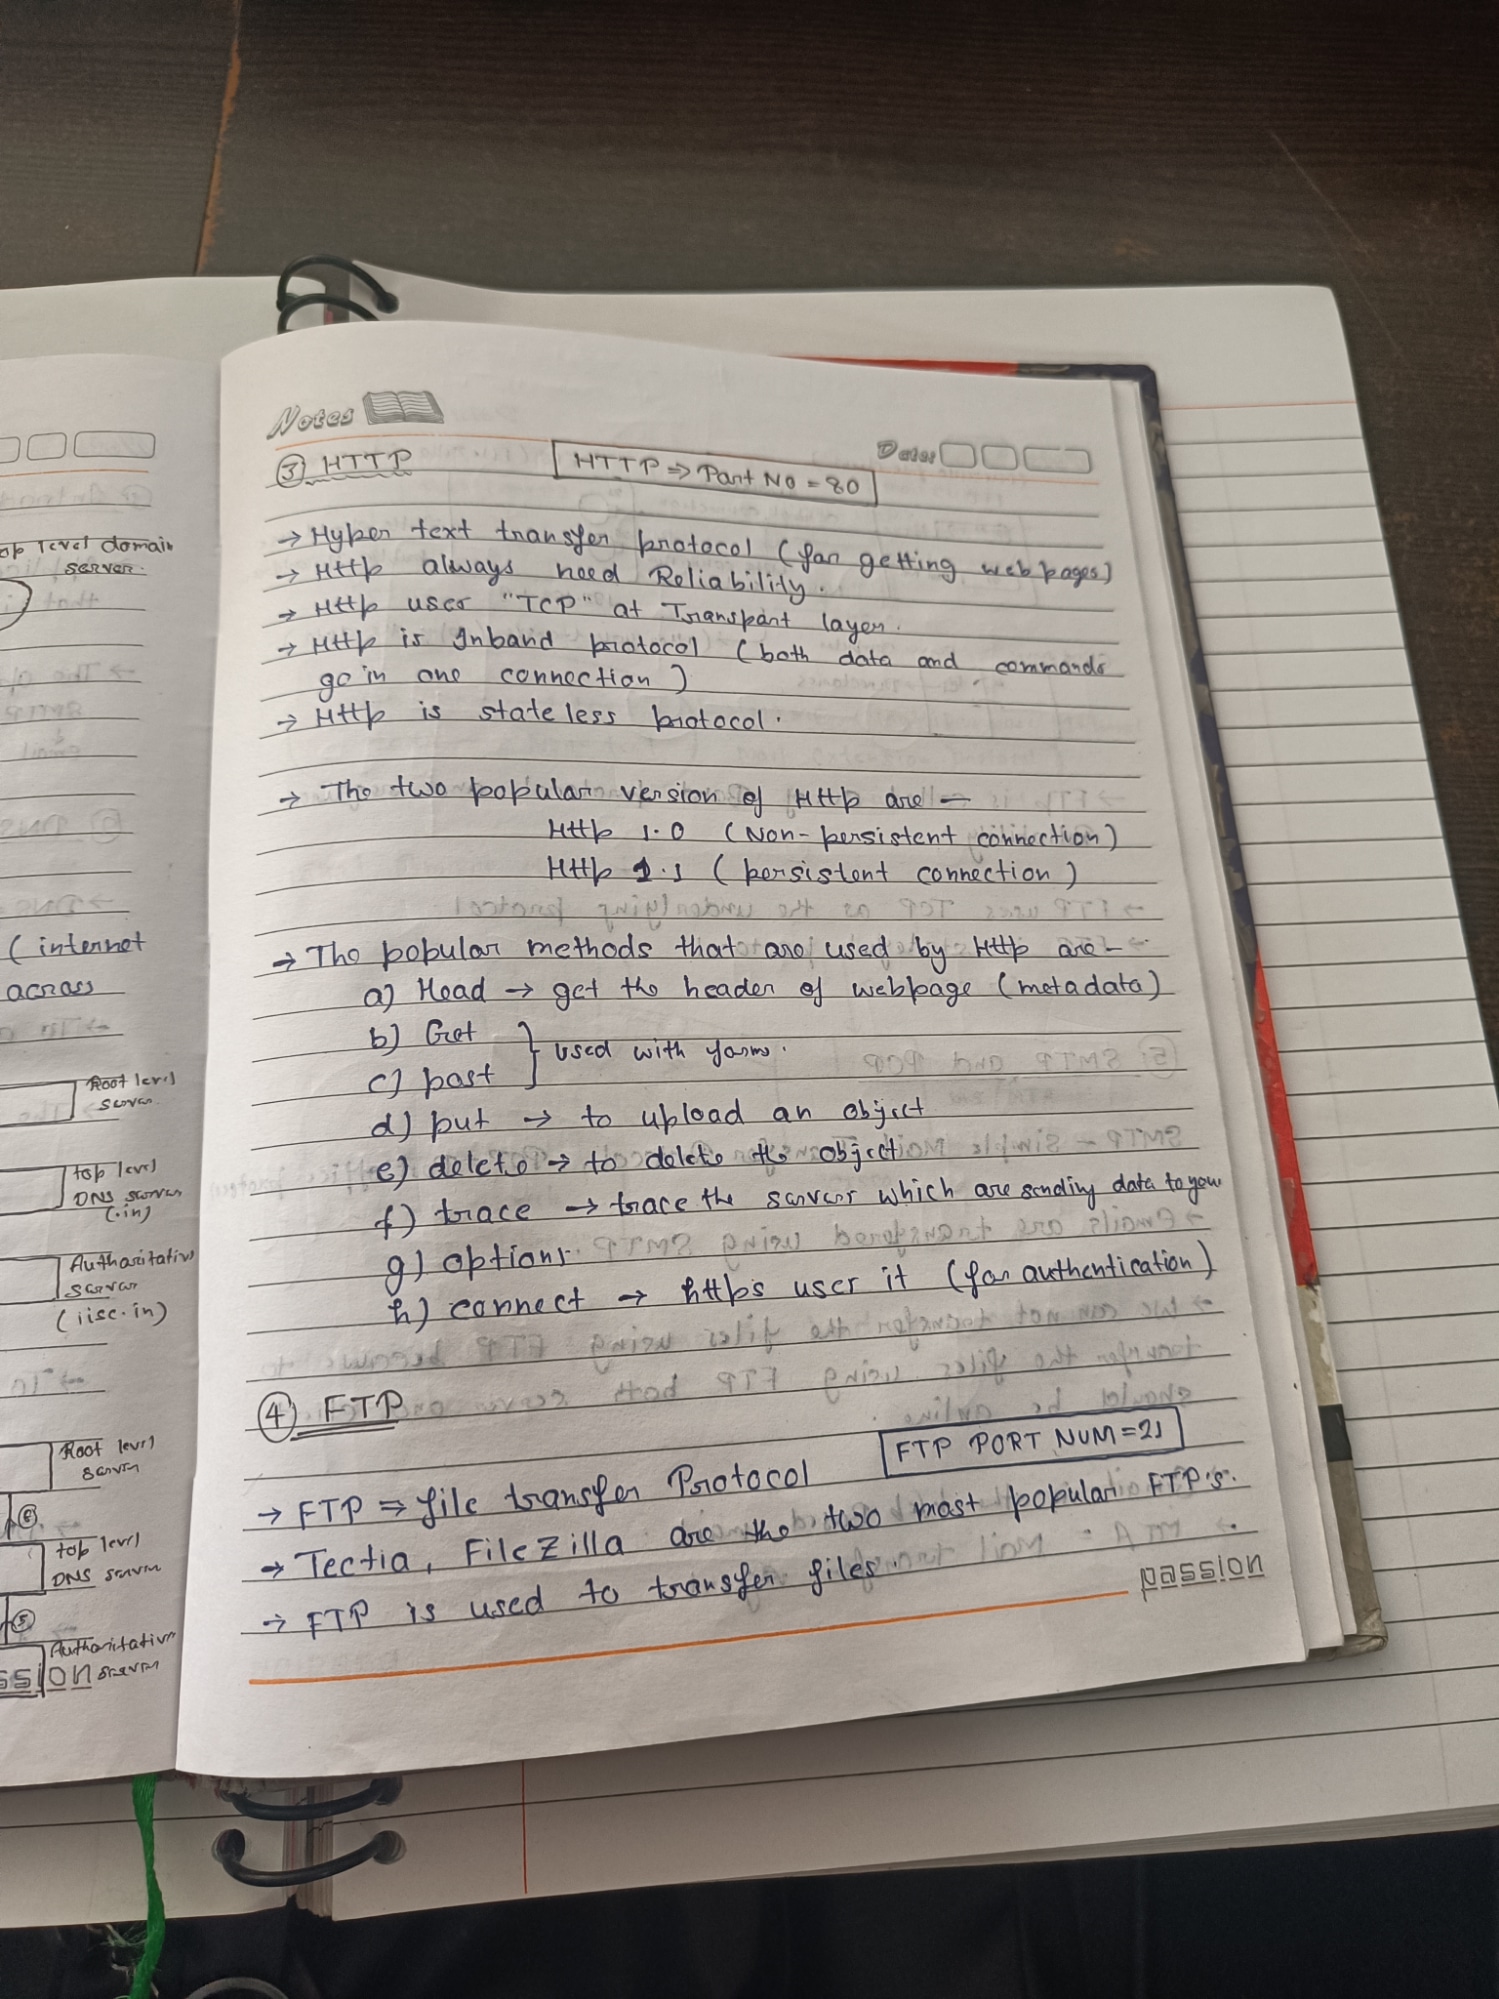 op level domain
server.
( internet
across
Root level
server
top level
DNS server
(.in)
Authoritative
server
(iisc.in)
Root level
server
6
top level
DNS server
5
Authoritative
server
ssion
Notes
Date:
3 HTTP
HTTP ⇒ Port No = 80
→ Hyper text transfer protocol (for getting web pages)
→ Http always need Reliability.
→ Http uses "TCP" at Transport layer.
→ Http is Inband protocol (both data and commands
go in one connection)
→ Http is stateless protocol.
→ The two popular version of Http are —
Http 1.0 (Non-persistent connection)
Http 1.1 (persistent connection)
→ The popular methods that are used by Http are —
a) Head → get the header of webpage (metadata)
b) Get
} used with forms.
c) post
d) put → to upload an object
e) delete → to delete the object
f) trace → trace the servers which are sending data to you
g) options.
h) connect → https user it (for authentication)
4 FTP
FTP PORT NUM = 21
→ FTP ⇒ file transfer Protocol
→ Tectia, FileZilla are the two most popular FTP's.
→ FTP is used to transfer files.
passion